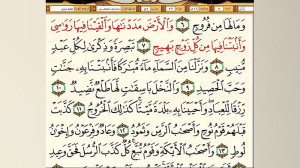 وَمَا لَهَا مِن فُرُوجٍ ٦ وَٱلْأَرْضَ مَدَدْنَٰهَا وَأَلْقَيْنَا فِيهَا رَوَٰسِىَ
وَأَنۢبَتْنَا فِيهَا مِن كُلِّ زَوْجٍۭ بَهِيجٍ ٧ تَبْصِرَةً وَذِكْرَىٰ لِكُلِّ عَبْدٍ
مُّنِيبٍ ٨ وَنَزَّلْنَا مِنَ ٱلسَّمَآءِ مَآءً مُّبَٰرَكًا فَأَنۢبَتْنَا بِهِۦ جَنَّٰتٍ
وَحَبَّ ٱلْحَصِيدِ ٩ وَٱلنَّخْلَ بَاسِقَٰتٍ لَّهَا طَلْعٌ نَّضِيدٌ ١٠
رِّزْقًا لِّلْعِبَادِ وَأَحْيَيْنَا بِهِۦ بَلْدَةً مَّيْتًا كَذَٰلِكَ ٱلْخُرُوجُ ١١ كَذَّبَتْ
قَبْلَهُمْ قَوْمُ نُوحٍ وَأَصْحَٰبُ ٱلرَّسِّ وَثَمُودُ ١٢ وَعَادٌ وَفِرْعَوْنُ وَإِخْوَٰنُ
لُوطٍ ١٣ وَأَصْحَٰبُ ٱلْأَيْكَةِ وَقَوْمُ تُبَّعٍ كُلٌّ كَذَّبَ ٱلرُّسُلَ فَحَقَّ وَعِيدِ